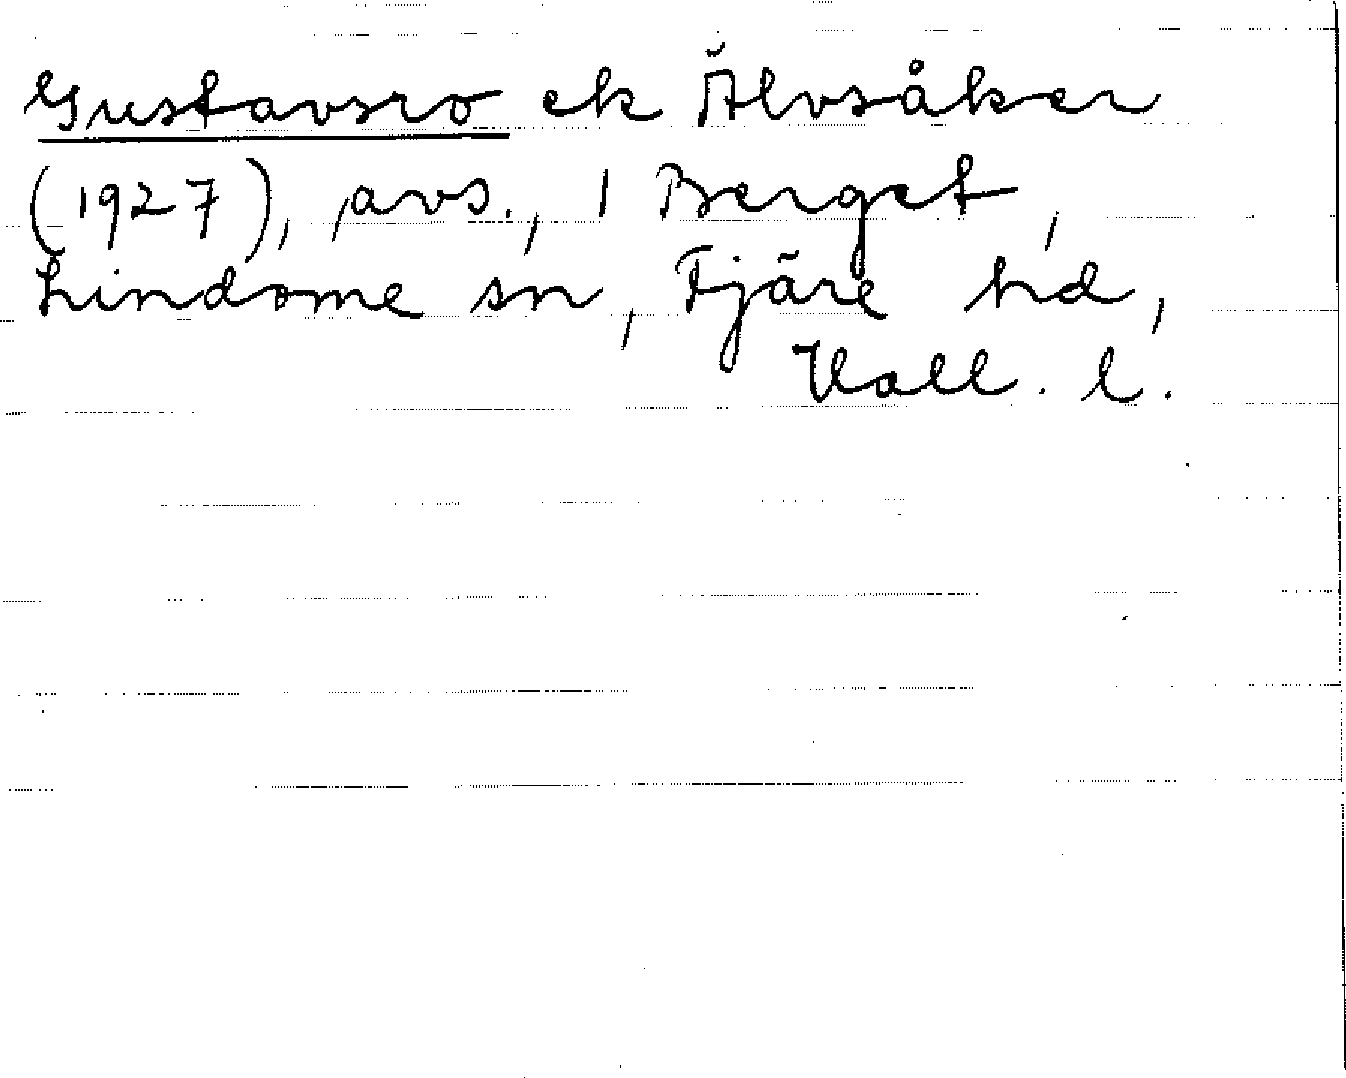 Gustavsro ek Älvsåker
(1927), avs., 1 Berget,
Lindome sn, Fjäre hd,
Hall. l.